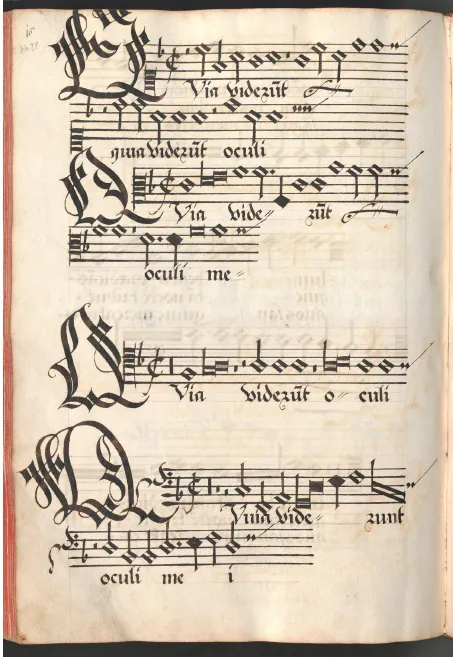 Via viderūt
quia viderūt oculi
Via vide= rūt
oculi me=
Via viderūt o= culi
Quia vide= runt
oculi me i